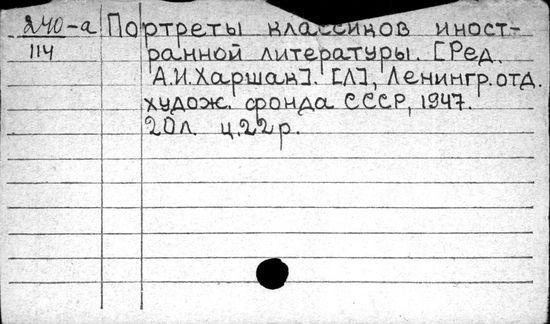 240-а Портреты классиков иност-
114 ранной литературы. [Ред.
А.И.Харшак]. [Л], Ленингр.отд.
худож. фонда СССР, 1947.
20л. ц.22р.